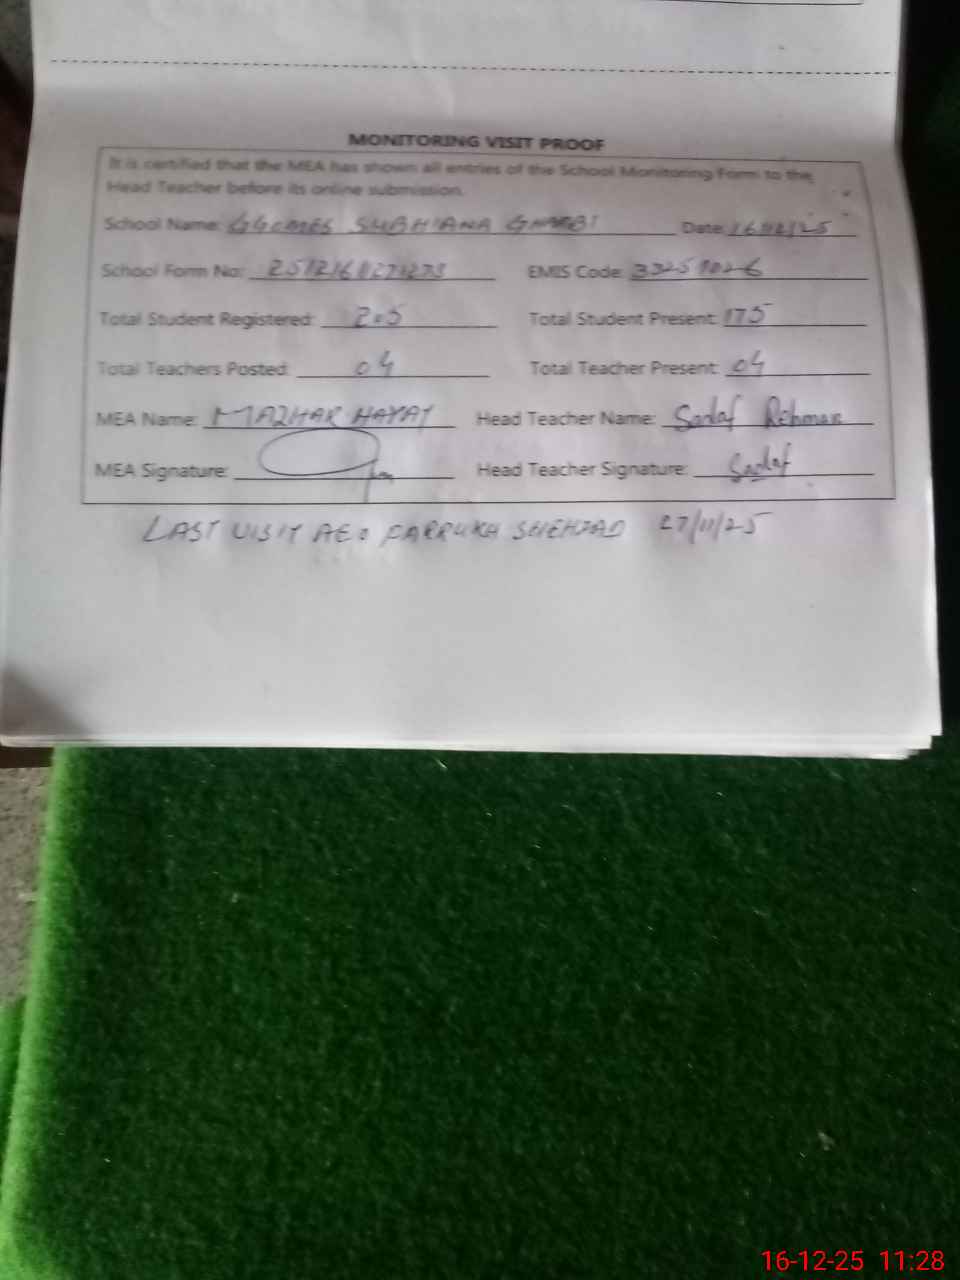 MONITORING VISIT PROOF
It is certified that the MEA has shown all entries of the School Monitoring Form to the
Head Teacher before its online submission.
School Name: GGCMES SUBHIANA GHARBI Date: 16/12/25
School Form No: EMIS Code:
Total Student Registered: 205 Total Student Present: 175
Total Teachers Posted: 04 Total Teacher Present: 04
MEA Name: MAZHAR HAYAT Head Teacher Name: Sadaf Rehman
MEA Signature: Head Teacher Signature: Sadaf
LAST VISIT AEO FARRUKH SHEHZAD 27/11/25
16-12-25 11:28